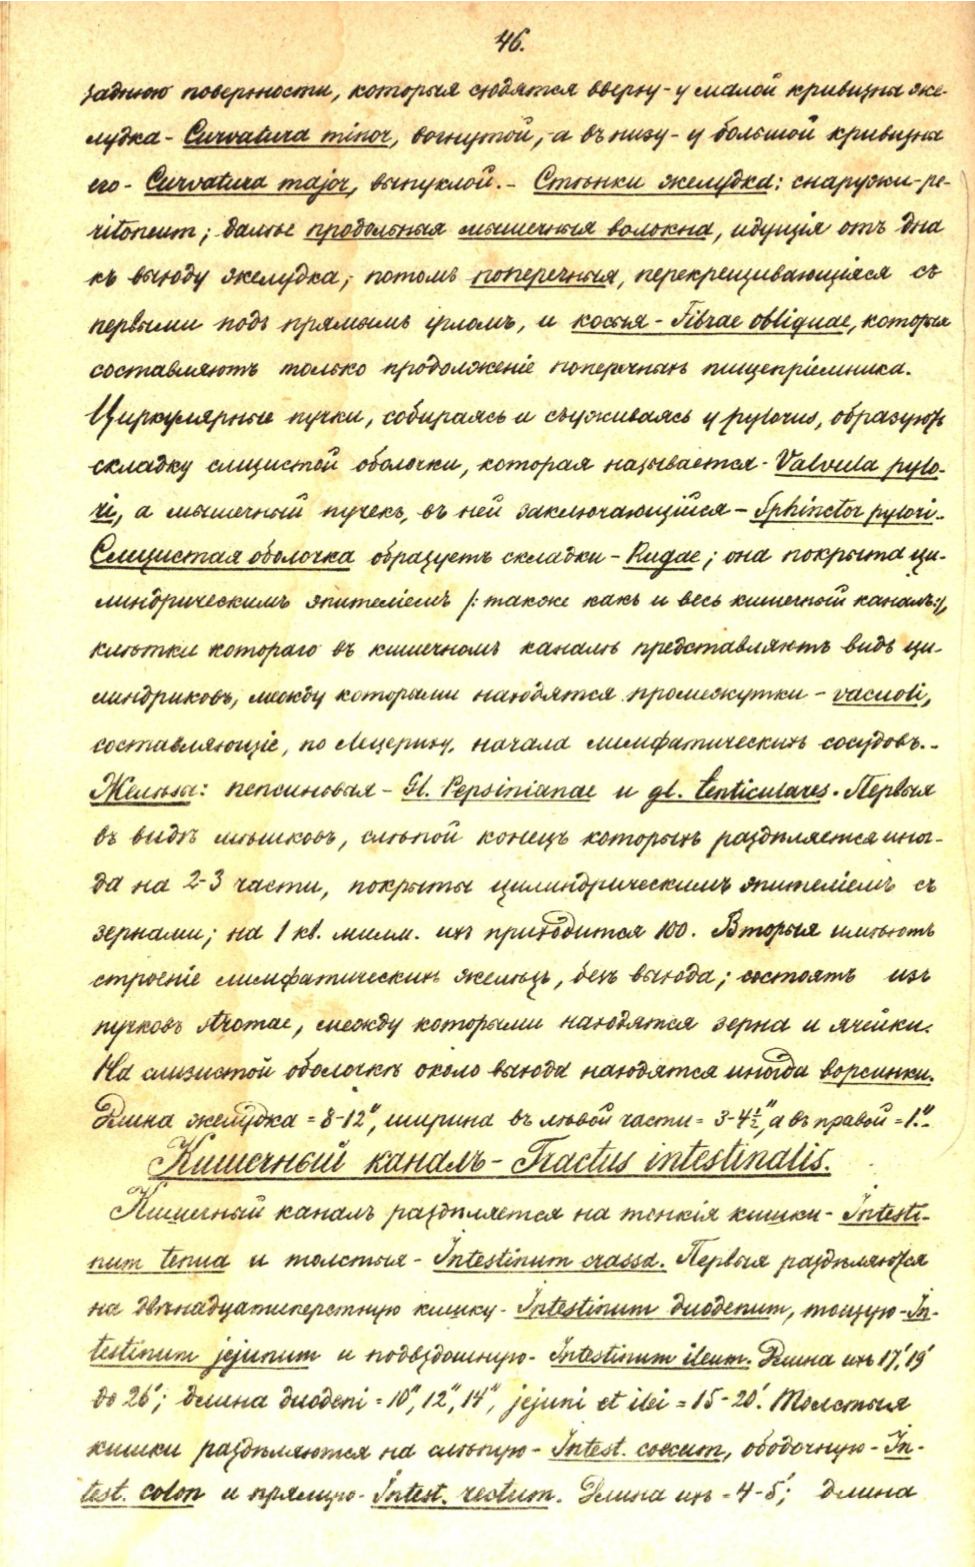 46.
заднюю поверхности, которыя сходятся вверху - у малой кривизны же-
лудка - Curvatura minor, вогнутой, - а въ низу - у большой кривизны
его - Curvatura major, выпуклой. - Стѣнки желудка: снаружи - pe-
ritoneum; далѣе продольныя мышечныя волокна, идущія отъ дна
къ выходу желудка; потомъ поперечныя, перекрещивающіяся съ
первыми подъ прямымъ угломъ, и косыя - Fibrae obliquae, которыя
составляютъ только продолженіе поперечныхъ пищепріемника.
Циркулярные пучки, собираясь и съуживаясь у pylorus, образуютъ
складку слизистой оболочки, которая называется - Valvula pylo-
ri, а мышечный пучекъ, въ ней заключающійся - Sphinctor pylori. -
Слизистая оболочка образуетъ складки - Rugae; она покрыта ци-
линдрическимъ эпителіемъ /: также какъ и весь кишечный каналъ :/,
клѣтки котораго въ кишечномъ каналѣ представляютъ видъ ци-
линдриковъ, между которыми находятся промежутки - vacuoli,
составляющіе, по Лецериху, начала лимфатическихъ сосудовъ. -
Железы: пепсиновыя - Gl. Pepsinianae и gl. lenticulares. Первыя
въ видѣ мѣшковъ, слѣпой конецъ которыхъ раздѣляется иног-
да на 2-3 части, покрыты цилиндрическимъ эпителіемъ съ
зернами; на 1 кв. милм. ихъ приходится 100. Вторыя имѣютъ
строеніе лимфатическихъ железъ, безъ выхода; состоятъ изъ
пучковъ stromae, между которыми находятся зерна и ячейки.
На слизистой оболочкѣ около выхода находятся иногда ворсинки.
Длина желудка = 8-12", ширина въ лѣвой части = 3-4½", а въ правой = 1". -
Кишечный каналъ - Tractus intestinalis.
Кишечный каналъ раздѣляется на тонкія кишки - Intesti-
num tenua и толстыя - Intestinum crassa. Первыя раздѣляются
на двѣнадцатиперстную кишку - Intestinum duodenum, тощую - In-
testinum jejunum и подвздошную - Intestinum ileum. Длина ихъ 17', 19'
до 26'; длина duodeni = 10", 12", 14", jejuni et ilei = 15-20'. Толстыя
кишки раздѣляются на слѣпую - Intest. coecum, ободочную - In-
test. colon и прямую - Intest. rectum. Длина ихъ = 4-5'; длина